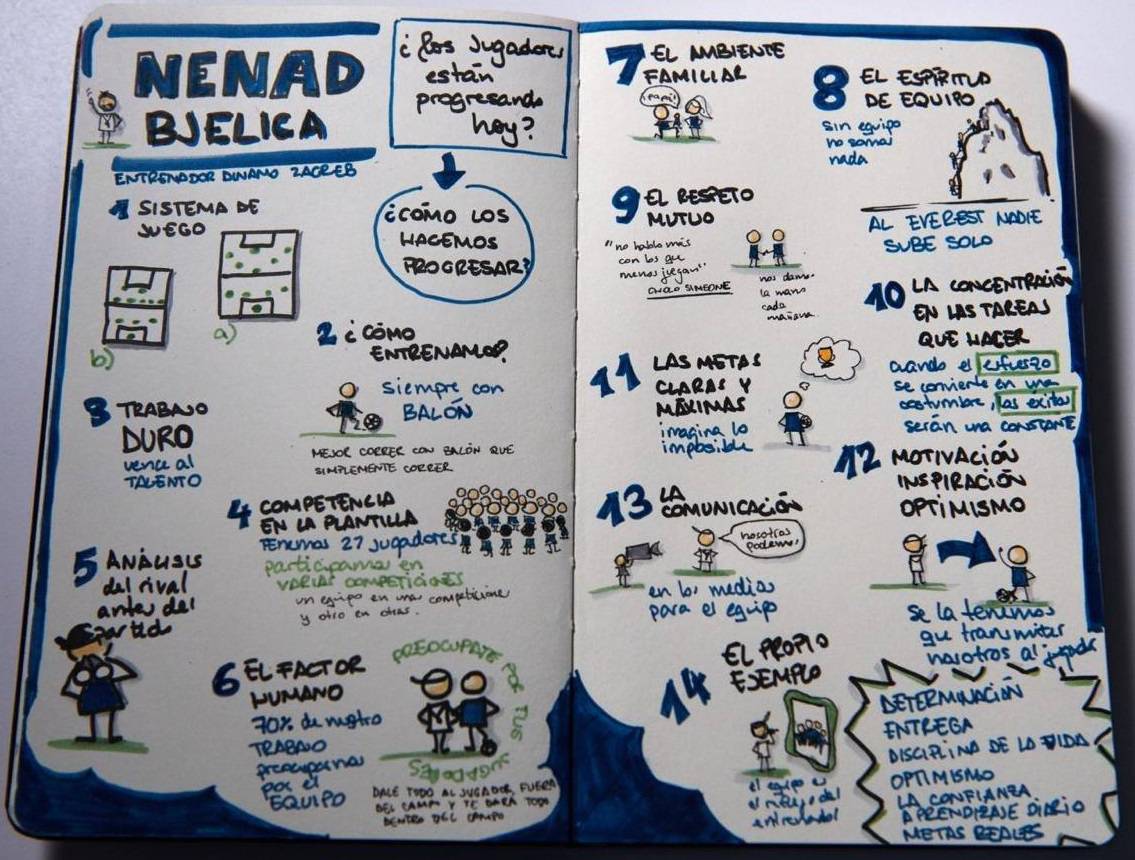 NENAD
BJELICA
ENTRENADOR DINAMO ZAGREB
¿Los jugadores
están
progresando
hoy?
¿CÓMO LOS
HACEMOS
PROGRESAR?
1 SISTEMA DE
JUEGO
a)
b)
2 ¿CÓMO
ENTRENAMOS?
siempre con
BALÓN
MEJOR CORRER CON BALÓN QUE
SIMPLEMENTE CORRER
3 TRABAJO
DURO
vence al
TALENTO
4 COMPETENCIA
EN LA PLANTILLA
TENEMOS 27 jugadores
participamos en
VARIAS COMPETICIONES
un equipo en unas competiciones
y otro en otras.
5 ANÁLISIS
del rival
antes del
partido
6 EL FACTOR
HUMANO
70% de nuestro
TRABAJO
preocuparnos
por el
EQUIPO
PREOCUPATE POR
TUS
JUGADORES
DALE TODO AL JUGADOR, FUERA
DEL CAMPO Y TE DARÁ TODO
DENTRO DEL CAMPO
7 EL AMBIENTE
FAMILIAR
¡papá!
8 EL ESPÍRITU
DE EQUIPO
sin equipo
no somos
nada
AL EVEREST NADIE
SUBE SOLO
9 EL RESPETO
MUTUO
"no hablo más
con los que
menos juegan"
CHOLO SIMEONE
nos damos
la mano
cada
mañana
10 LA CONCENTRACIÓN
EN LAS TAREAS
QUE HACER
cuando el esfuerzo
se convierte en una
costumbre, los éxitos
serán una CONSTANTE
11 LAS METAS
CLARAS Y
MÁXIMAS
imagina lo
imposible
12 MOTIVACIÓN
INSPIRACIÓN
OPTIMISMO
se la tenemos
que transmitir
nosotros al jugador
13 LA
COMUNICACIÓN
nosotros
podemos
en los medios
para el equipo
14 EL PROPIO
EJEMPLO
el equipo es
el reflejo del
entrenador
DETERMINACIÓN
ENTREGA
DISCIPLINA DE LA VIDA
OPTIMISMO
LA CONFIANZA
APRENDIZAJE DIARIO
METAS REALES